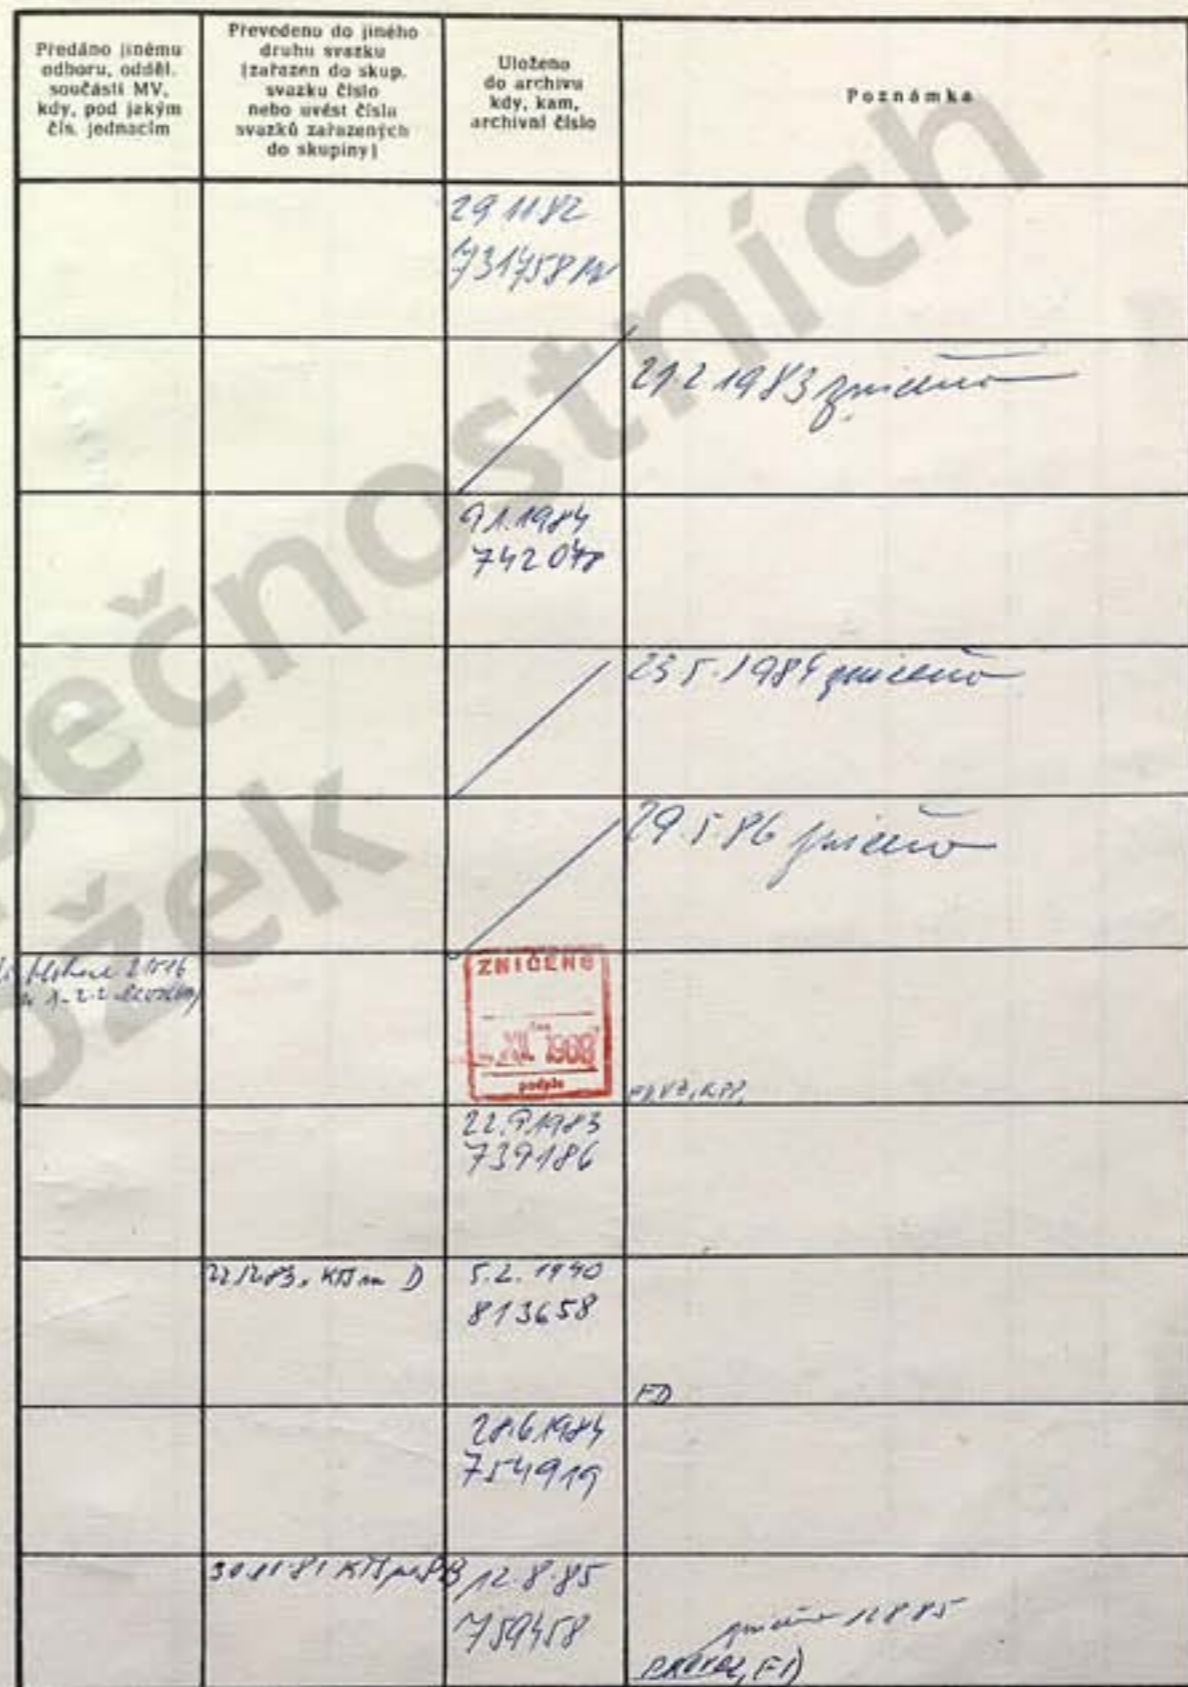 Předáno jinému
odboru, odděl.
součásti MV,
kdy, pod jakým
čís. jednacím
Převedeno do jiného
druhu svazku
(zařazen do skup.
svazku číslo
nebo uvést čísla
svazků zařazených
do skupiny)
Uloženo
do archivu
kdy, kam,
archivní číslo
Poznámka
29 11 82
731758 MV
21.2 1983 zničeno
9.1.1984
742048
23 5. 1984 zničeno
29.5.86 zničeno
ZNIČENO
XII. 1988
podpis
22.9.1983
739186
22.12.83. KTS na D
5.2. 1990
813658
FD
28.6.1984
754919
30.11.81 KTS
12.8.85
759458
zničeno 12 8 85
ečnostních
ožek